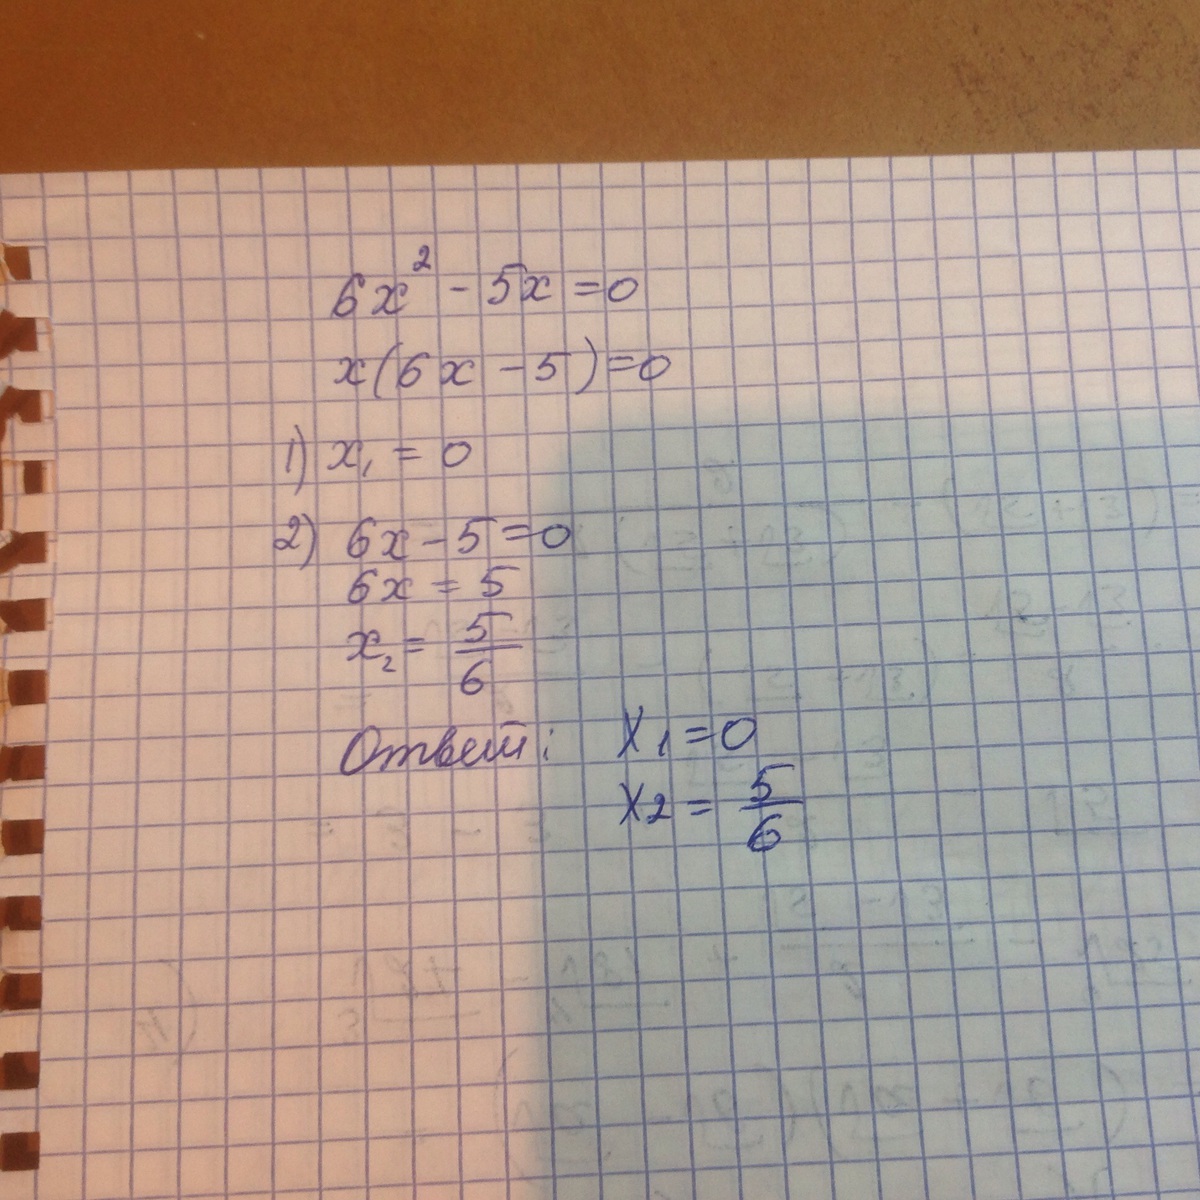 6x² - 5x = 0
x(6x - 5) = 0
1) x₁ = 0
2) 6x - 5 = 0
6x = 5
x₂ = 5/6
Ответ: x₁ = 0
x₂ = 5/6